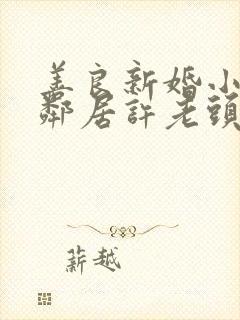 善良新婚小
鄰居許老頭
薪越